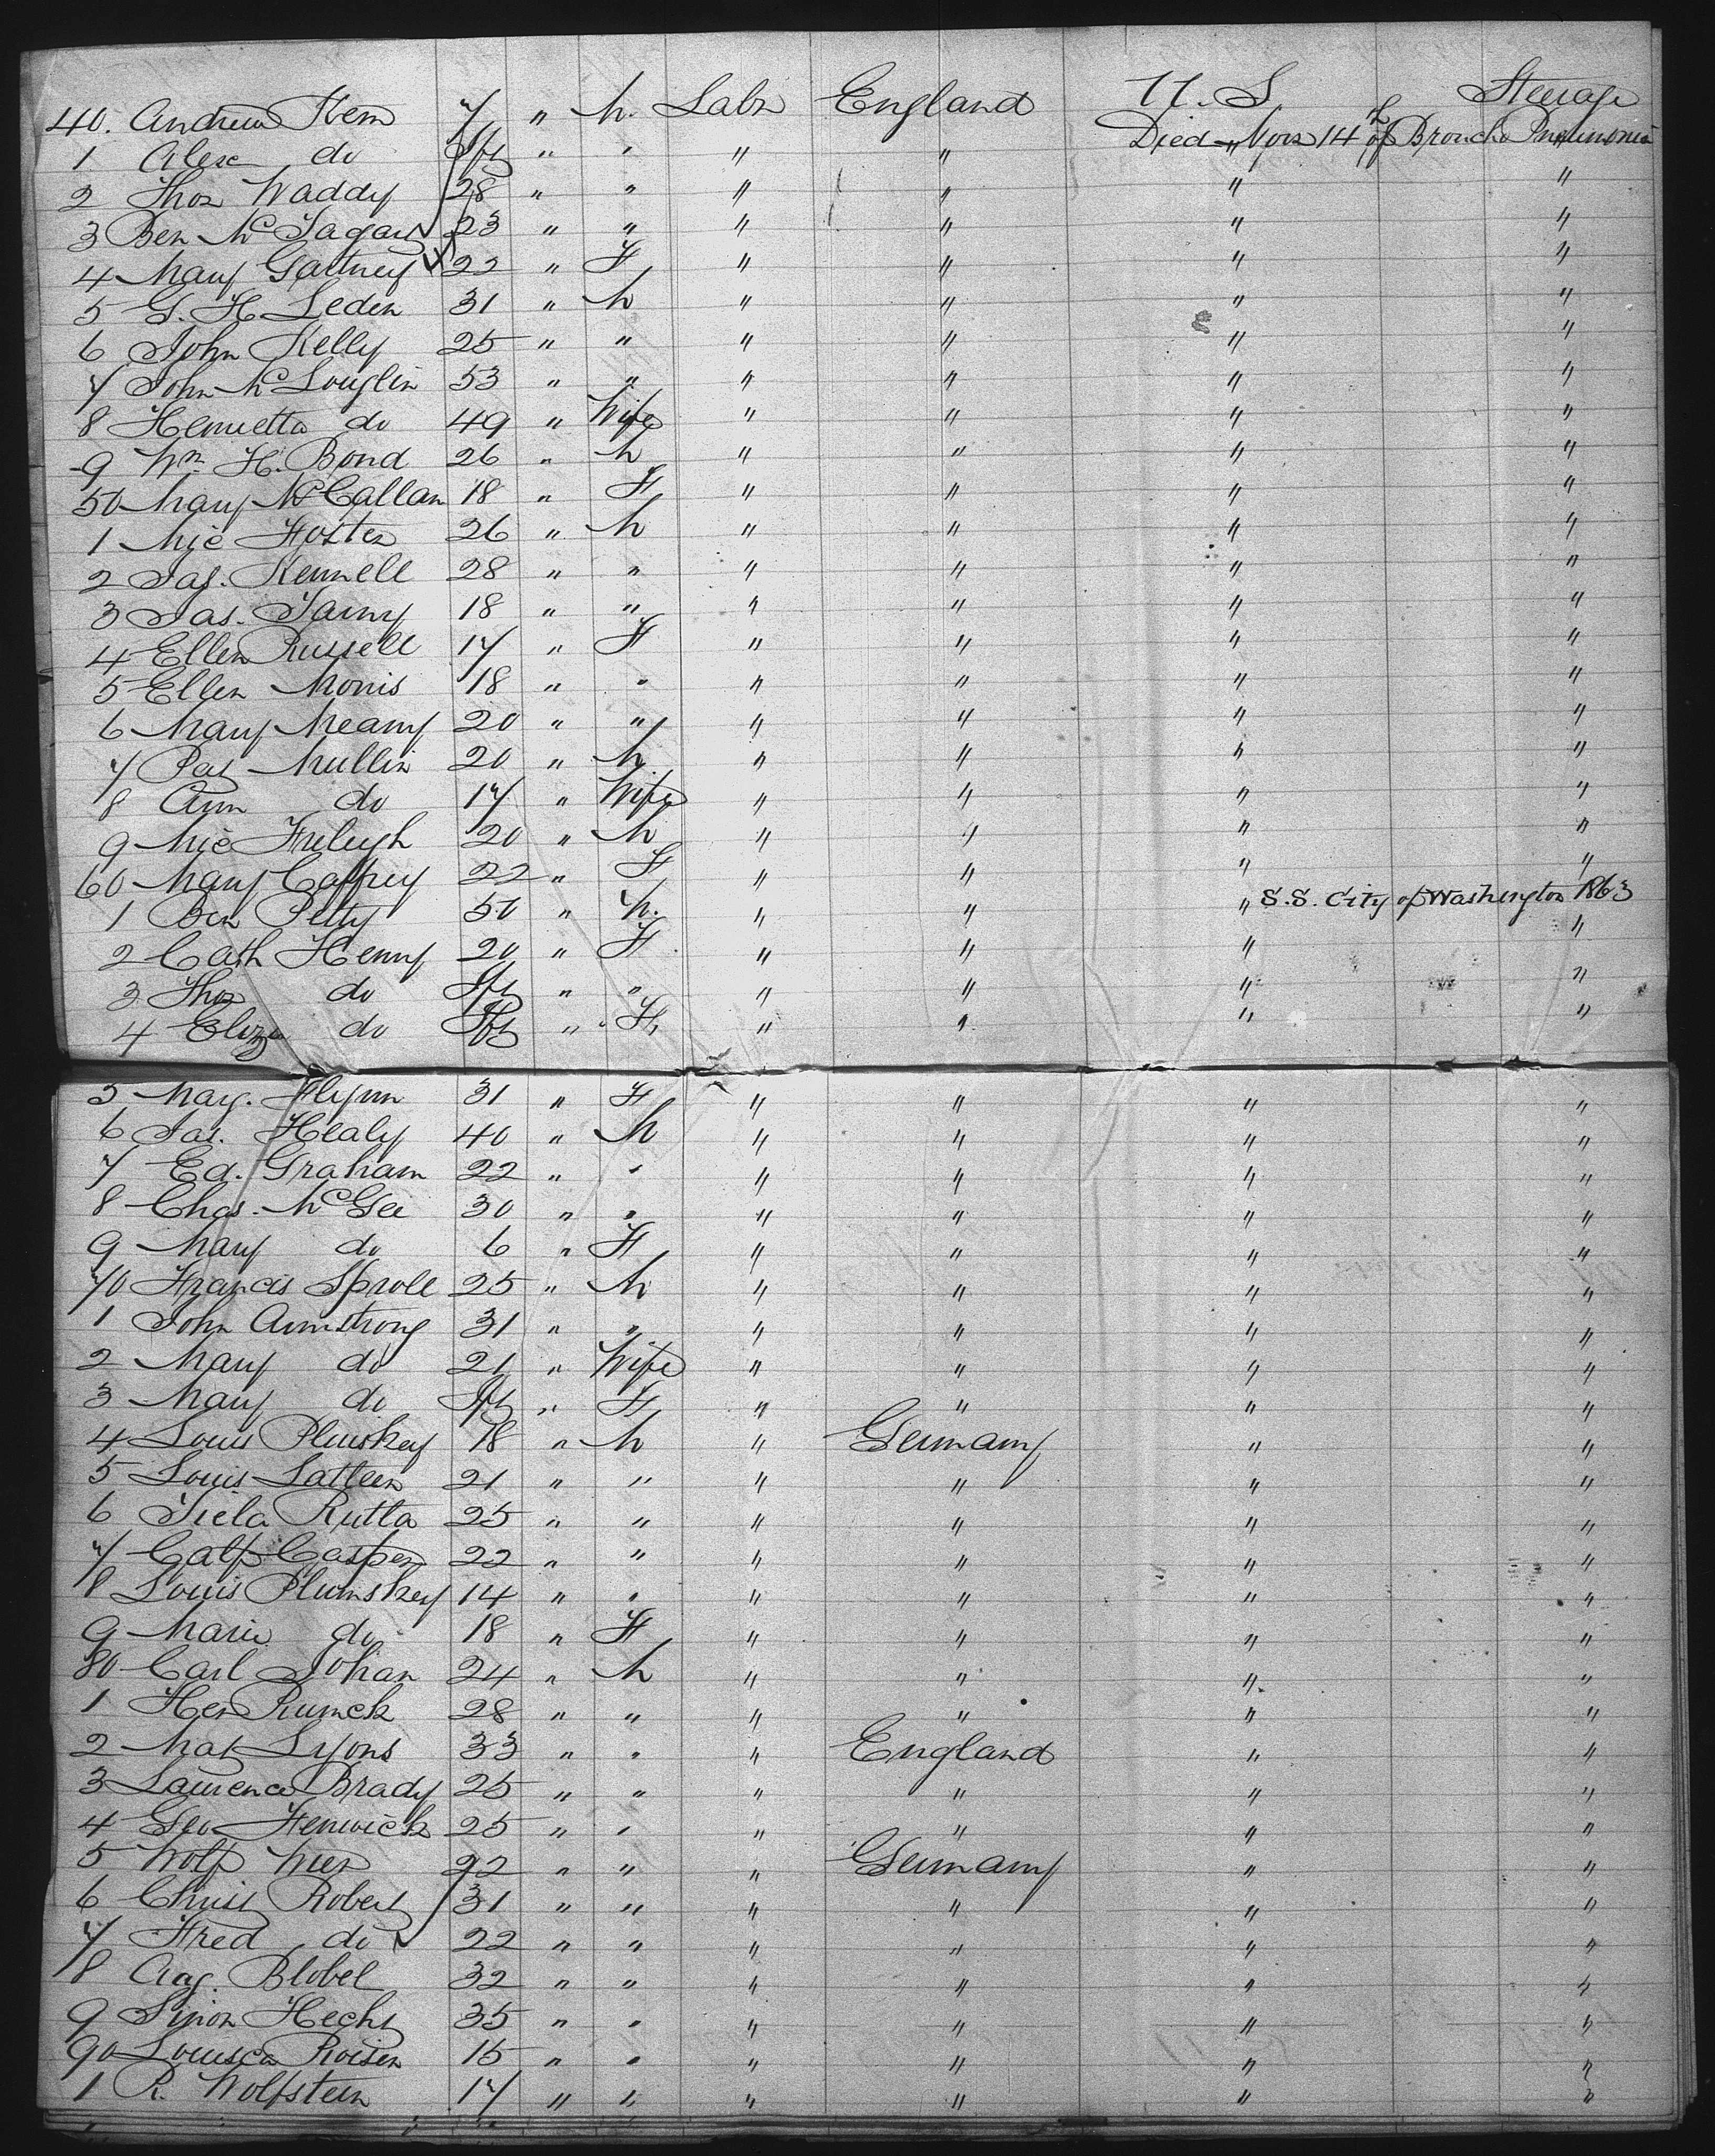 40. Andrew Hem 7 " M. Labr England U. S. Steerage
1 Alex do Inft " " " " Died Novr 14th of Broncho Pneumonia
2 Thos Waddy 28 " " " " " "
3 Ben McTagart 23 " " " " " "
4 Mary Gaffney 22 " F " " " "
5 G. H. Leden 31 " M " " " "
6 John Kelly 25 " " " " " "
7 John McLouglin 53 " " " " " "
8 Henrietta do 49 " Wife " " " "
9 Wm H. Bond 26 " M " " " "
50 Mary McCallan 18 " F " " " "
1 Mic Foster 26 " M " " " "
2 Jas. Kennell 28 " " " " " "
3 Jas. Tarny 18 " " " " " "
4 Ellen Russell 17 " F " " " "
5 Ellen Morris 18 " " " " " "
6 Mary Meany 20 " " " " " "
7 Pat Mullin 20 " M " " " "
8 Ann do 17 " Wife " " " "
9 Mic Freleigh 20 " M " " " "
60 Mary Caffrey 22 " F " " " "
S.S. City of Washington 1863
1 Ben Petty 50 " M. " " " "
2 Cath Henny 20 " F " " " "
3 Thos do Inft " " " " " "
4 Eliza do Inft " F " " " "
5 Mag. Flynn 31 " F " " " "
6 Jas. Healy 40 " M " " " "
7 Ed. Graham 22 " " " " " "
8 Chas. McGee 30 " " " " " "
9 Mary do 6 " F " " " "
70 Francis Sproll 25 " M " " " "
1 John Armstrong 31 " " " " " "
2 Mary do 21 " Wife " " " "
3 Mary do Inft " F " " " "
4 Louis Pluiskey 18 " M " Germany " "
5 Louis Latteen 21 " " " " " "
6 Tiela Rutta 25 " " " " " "
7 Calf Casper 22 " " " " " "
8 Louis Plumskey 14 " " " " " "
9 Marie do 18 " F " " " "
80 Carl Johan 24 " M " " " "
1 Her Rumck 28 " " " " " "
2 Mat Lyons 33 " " " England " "
3 Laurence Brady 25 " " " " " "
4 Geo Fenwick 25 " " " " " "
5 Wolf Wier 22 " " " Germany " "
6 Christ Robert 31 " " " " " "
7 Fred do 22 " " " " " "
8 Aug. Blobel 32 " " " " " "
9 Simon Hecht 35 " " " " " "
90 Louisca Roisen 15 " " " " " "
1 R. Wolfstein 17 " " " " " "